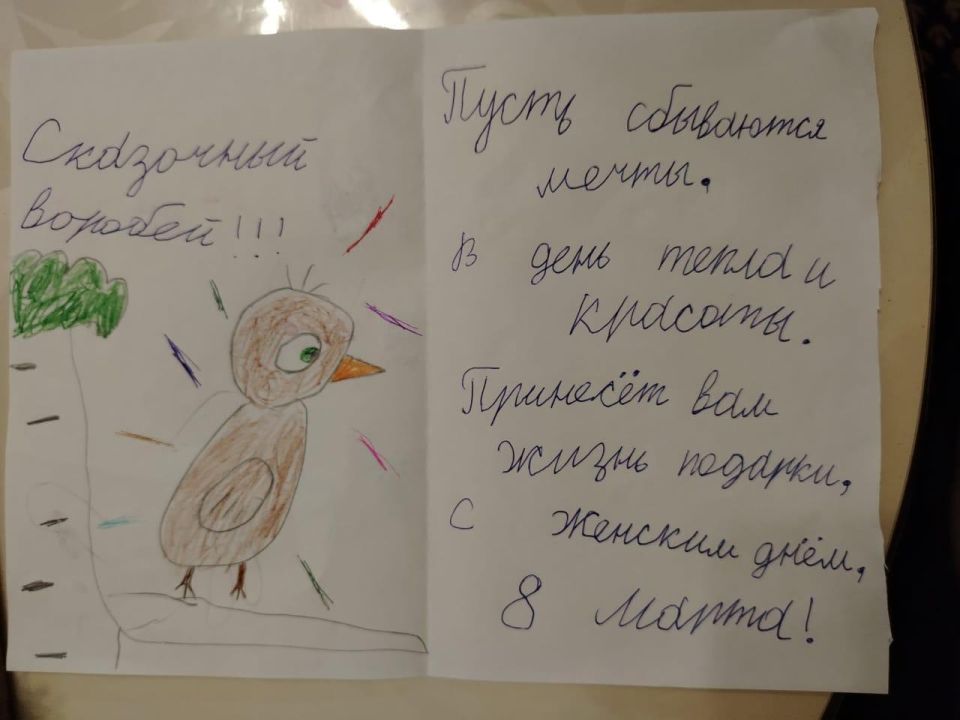 Сказочный
воробей!!!
Пусть сбываются
мечты.
В день тепла и
красоты.
Принесёт вам
жизнь подарки,
С женским днём,
8 Марта!